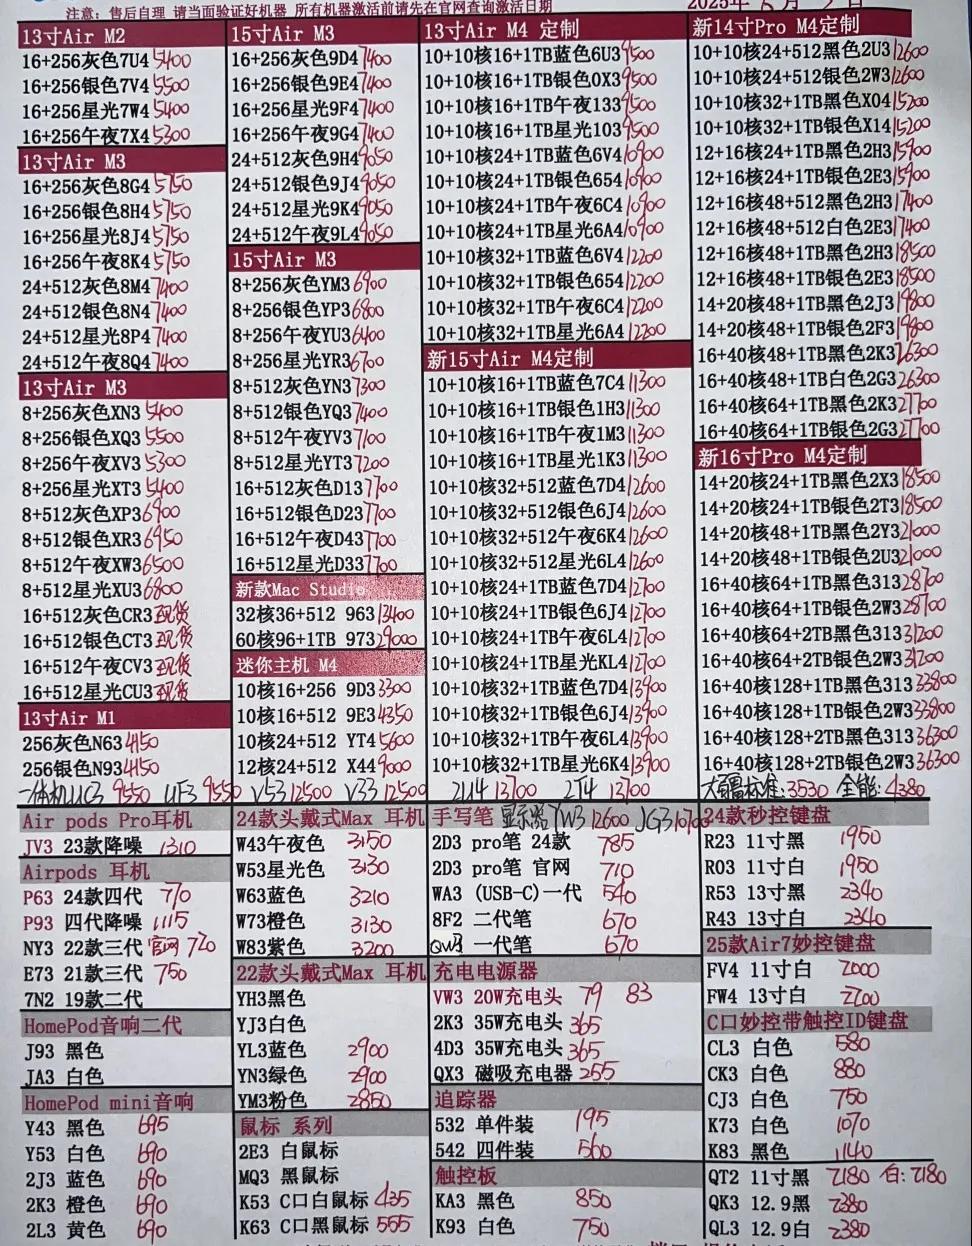 注意：售后自理 请当面验证好机器 所有机器激活前请先在官网查询激活日期
2025年 6月
13寸Air M2
16+256灰色7U4 5400
16+256银色7V4 5500
16+256星光7W4 5400
16+256午夜7X4 5300
13寸Air M3
16+256灰色8G4 5750
16+256银色8H4 5750
16+256星光8J4 5750
16+256午夜8K4 5750
24+512灰色8M4 7400
24+512银色8N4 7400
24+512星光8P4 7400
24+512午夜8Q4 7400
13寸Air M3
8+256灰色XN3 5400
8+256银色XQ3 5500
8+256午夜XV3 5300
8+256星光XT3 5400
8+512灰色XP3 6900
8+512银色XR3 6950
8+512午夜XW3 6500
8+512星光XU3 6800
16+512灰色CR3 现货
16+512银色CT3 现货
16+512午夜CV3 现货
16+512星光CU3 现货
13寸Air M1
256灰色N63 4150
256银色N93 4150
15寸Air M3
16+256灰色9D4 7400
16+256银色9E4 7400
16+256星光9F4 7400
16+256午夜9G4 7400
24+512灰色9H4 9050
24+512银色9J4 9050
24+512星光9K4 9050
24+512午夜9L4 9050
15寸Air M3
8+256灰色YM3 6900
8+256银色YP3 6800
8+256午夜YU3 6400
8+256星光YR3 6700
8+512灰色YN3 7300
8+512银色YQ3 7400
8+512午夜YV3 7100
8+512星光YT3 7200
16+512灰色D13 7700
16+512银色D23 7700
16+512午夜D43 7700
16+512星光D33 7700
新款Mac Studio
32核36+512 963 13400
60核96+1TB 973 29000
迷你主机 M4
10核16+256 9D3 3300
10核16+512 9E3 4350
10核24+512 YT4 5600
12核24+512 X44 9000
13寸Air M4 定制
10+10核16+1TB蓝色6U3 9500
10+10核16+1TB银色0X3 9500
10+10核16+1TB午夜133 9500
10+10核16+1TB星光103 9500
10+10核24+1TB蓝色6V4 10900
10+10核24+1TB银色654 10900
10+10核24+1TB午夜6C4 10900
10+10核24+1TB星光6A4 10900
10+10核32+1TB蓝色6V4 12200
10+10核32+1TB银色654 12200
10+10核32+1TB午夜6C4 12200
10+10核32+1TB星光6A4 12200
新15寸Air M4定制
10+10核16+1TB蓝色7C4 11300
10+10核16+1TB银色1H3 11300
10+10核16+1TB午夜1M3 11300
10+10核16+1TB星光1K3 11300
10+10核32+512蓝色7D4 12600
10+10核32+512银色6J4 12600
10+10核32+512午夜6K4 12600
10+10核32+512星光6L4 12600
10+10核24+1TB蓝色7D4 12700
10+10核24+1TB银色6J4 12700
10+10核24+1TB午夜6L4 12700
10+10核24+1TB星光KL4 12700
10+10核32+1TB蓝色7D4 13900
10+10核32+1TB银色6J4 13900
10+10核32+1TB午夜6L4 13900
10+10核32+1TB星光6K4 13900
新14寸Pro M4定制
10+10核24+512黑色2U3 12600
10+10核24+512银色2W3 12600
10+10核32+1TB黑色X04 15200
10+10核32+1TB银色X14 15200
12+16核24+1TB黑色2H3 15900
12+16核24+1TB银色2E3 15900
12+16核48+512黑色2H3 17400
12+16核48+512白色2E3 17400
12+16核48+1TB黑色2H3 18500
12+16核48+1TB银色2E3 18500
14+20核48+1TB黑色2J3 19800
14+20核48+1TB银色2F3 19800
16+40核48+1TB黑色2K3 26300
16+40核48+1TB白色2G3 26300
16+40核64+1TB黑色2K3 27700
16+40核64+1TB银色2G3 27700
新16寸Pro M4定制
14+20核24+1TB黑色2X3 18500
14+20核24+1TB银色2T3 18500
14+20核48+1TB黑色2Y3 21000
14+20核48+1TB银色2U3 21000
16+40核64+1TB黑色313 28700
16+40核64+1TB银色2W3 28700
16+40核64+2TB黑色313 31200
16+40核64+2TB银色2W3 31200
16+40核128+1TB黑色313 33800
16+40核128+1TB银色2W3 33800
16+40核128+2TB黑色313 36300
16+40核128+2TB银色2W3 36300
一体机UC3 9550 UF3 9550 V53 12500 V33 12500 2U4 13700 2T4 13700 大疆标准:3530 全能:4380
Air pods Pro耳机
JV3 23款降噪 1310
Airpods 耳机
P63 24款四代 770
P93 四代降噪 1115
NY3 22款三代 官网 720
E73 21款三代 750
7N2 19款二代
HomePod音响二代
J93 黑色
JA3 白色
HomePod mini音响
Y43 黑色 695
Y53 白色 690
2J3 蓝色 690
2K3 橙色 690
2L3 黄色 690
24款头戴式Max 耳机
W43午夜色 3150
W53星光色 3130
W63蓝色 3210
W73橙色 3130
W83紫色 3200
22款头戴式Max 耳机
YH3黑色
YJ3白色
YL3蓝色 2900
YN3绿色 2900
YM3粉色 2850
鼠标 系列
2E3 白鼠标
MQ3 黑鼠标
K53 C口白鼠标 435
K63 C口黑鼠标 555
手写笔 显示器YW3 12600 JG3 10700
2D3 pro笔 24款 785
2D3 pro笔 官网 710
WA3 (USB-C)一代 540
8F2 二代笔 670
QW3 一代笔 670
充电电源器
VW3 20W充电头 79 83
2K3 35W充电头 365
4D3 35W充电头 365
QX3 磁吸充电器 255
追踪器
532 单件装 195
542 四件装 560
触控板
KA3 黑色 850
K93 白色 750
24款秒控键盘
R23 11寸黑 1950
R03 11寸白 1950
R53 13寸黑 2340
R43 13寸白 2340
25款Air7妙控键盘
FV4 11寸白 2000
FW4 13寸白 2200
C口妙控带触控ID键盘
CL3 白色 580
CK3 白色 880
CJ3 白色 750
K73 白色 1070
K83 黑色 1140
QT2 11寸黑 2180 白:2180
QK3 12.9黑 2380
QL3 12.9白 2380